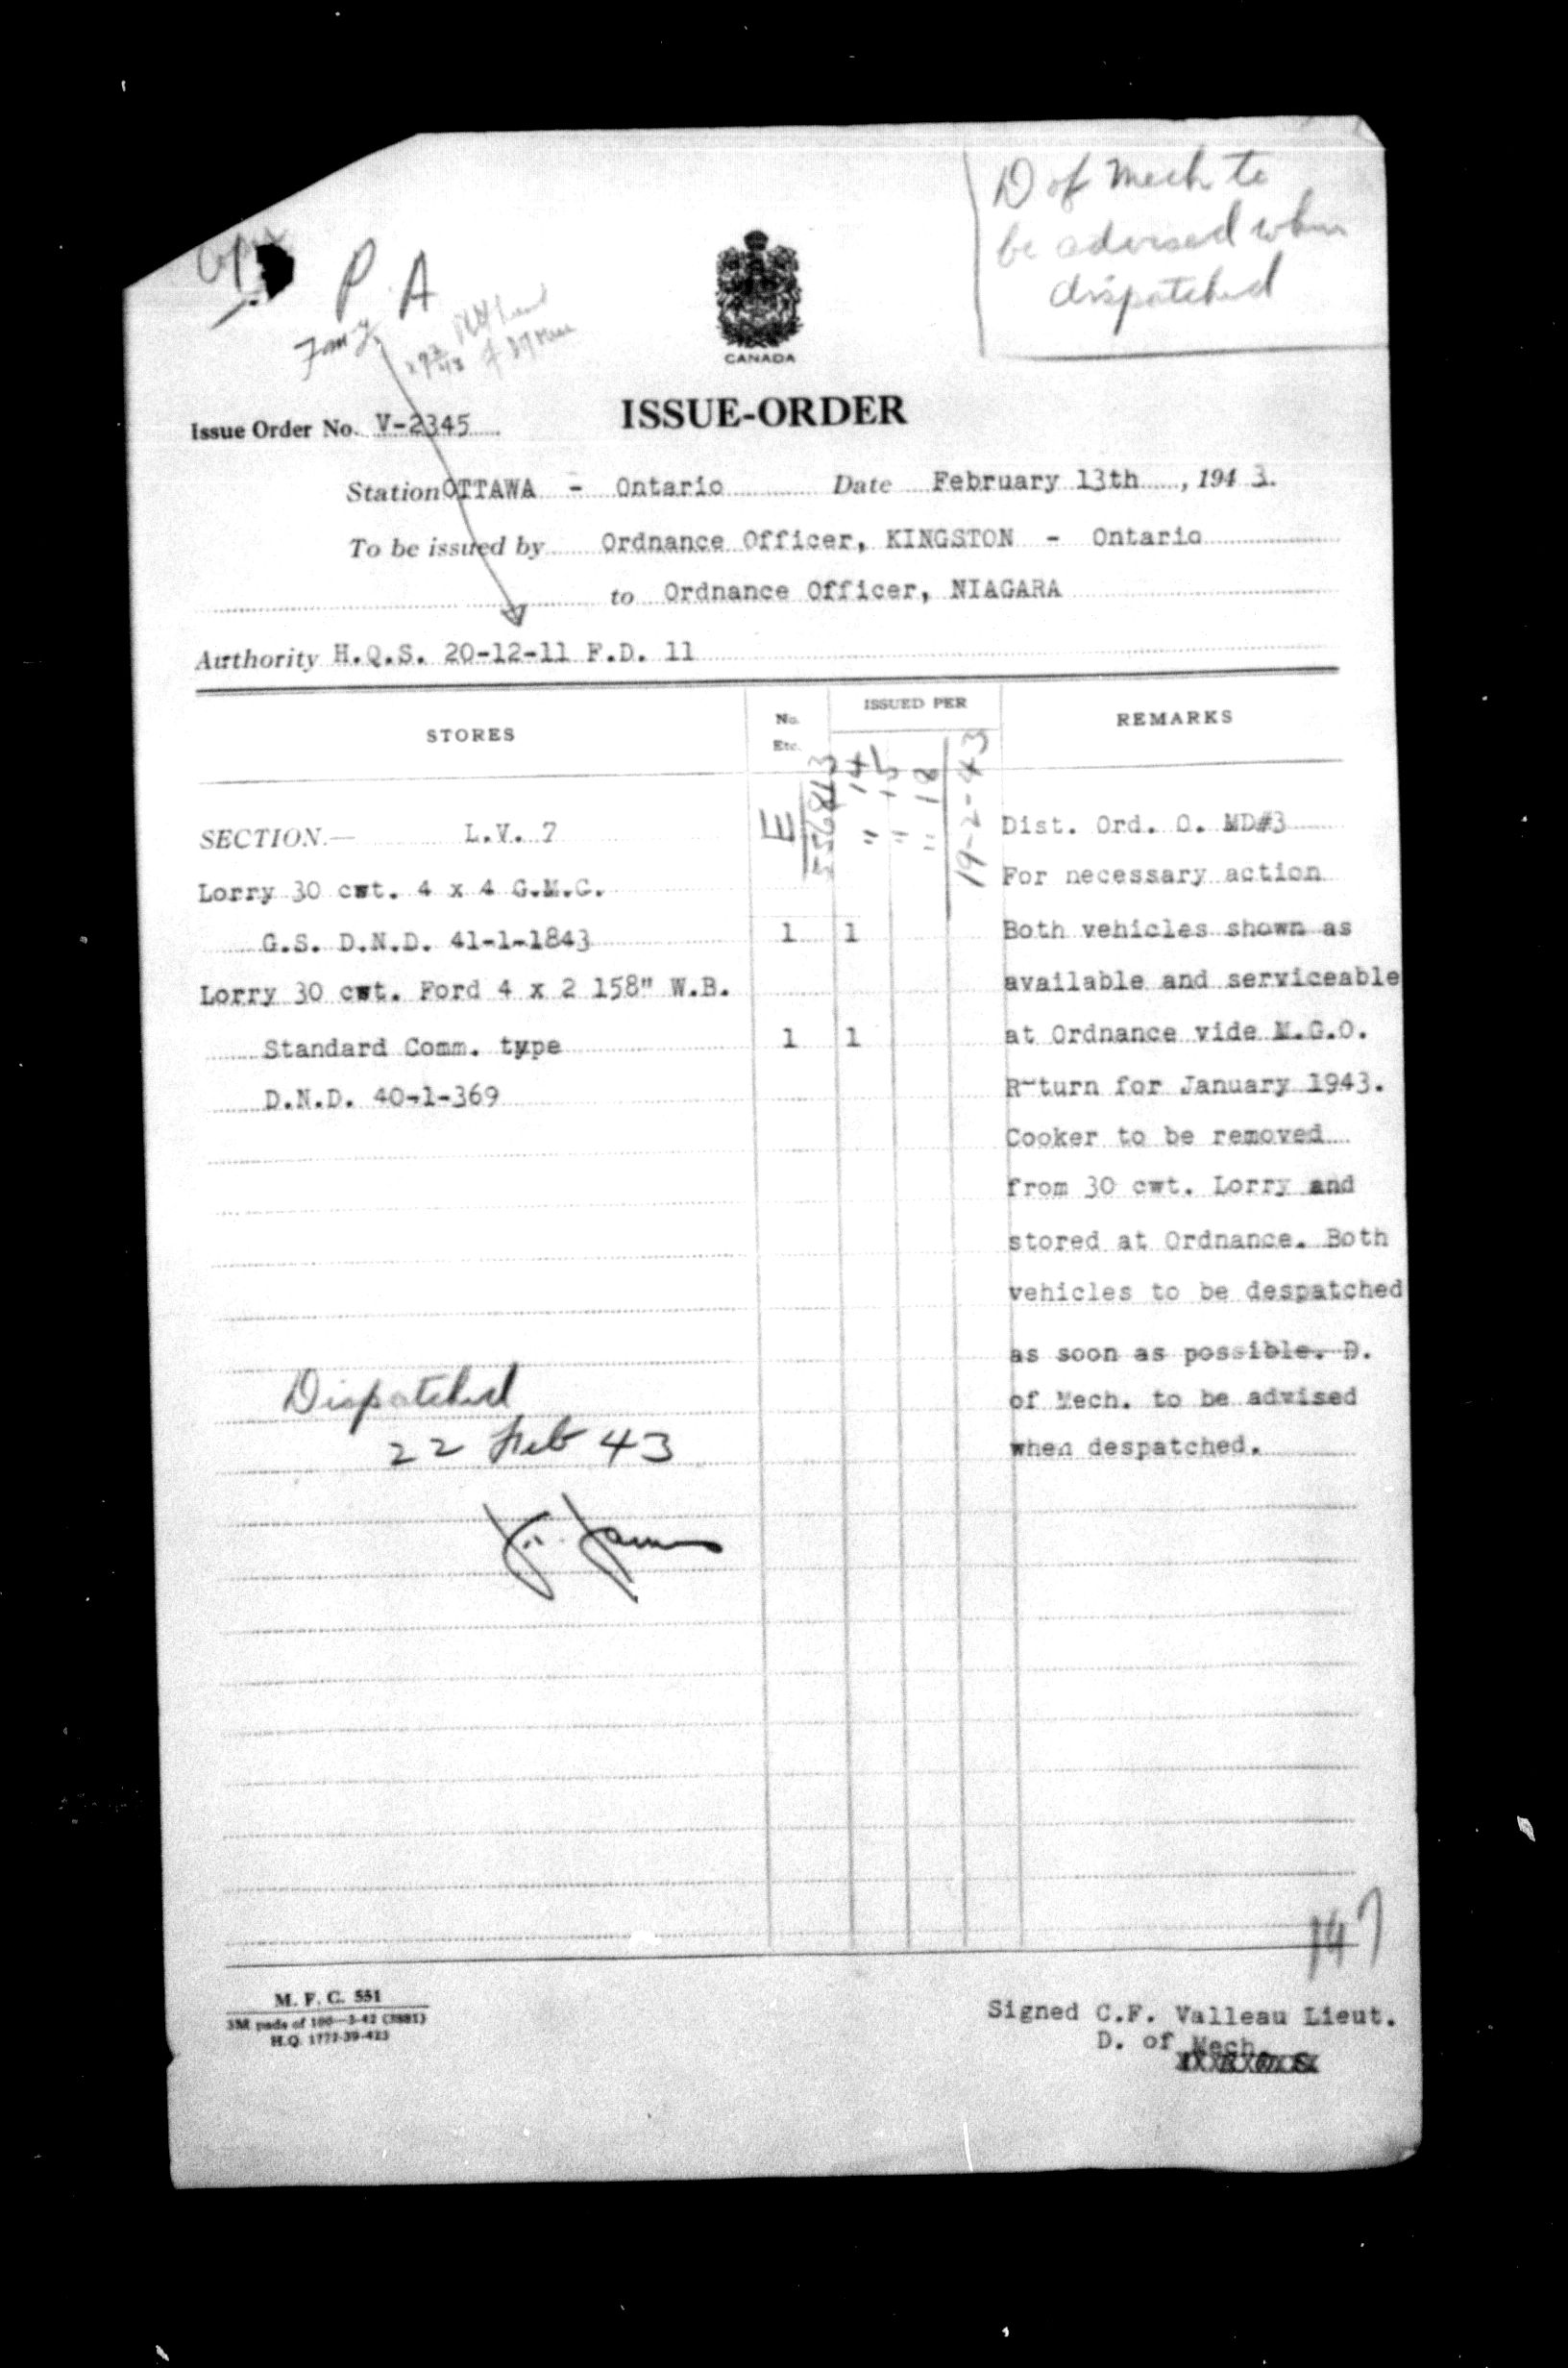 Copy
P. A
D of Mech to
be advised when
dispatched
CANADA
ISSUE-ORDER
Issue Order No. V-2345
Station OTTAWA - Ontario Date February 13th, 1943.
To be issued by Ordnance Officer, KINGSTON - Ontario
to Ordnance Officer, NIAGARA
Authority H.Q.S. 20-12-11 F.D. 11
STORES No. Etc. ISSUED PER REMARKS
E
556813
" 14
" 15
" 18
19-2-43
SECTION.— L.V. 7 Dist. Ord. O. MD#3
Lorry 30 cwt. 4 x 4 G.M.C. For necessary action
G.S. D.N.D. 41-1-1843 1 1 Both vehicles shown as
Lorry 30 cwt. Ford 4 x 2 158" W.B. available and serviceable
Standard Comm. type 1 1 at Ordnance vide M.G.O.
D.N.D. 40-1-369 R-turn for January 1943.
Cooker to be removed
from 30 cwt. Lorry and
stored at Ordnance. Both
vehicles to be despatched
as soon as possible. D.
of Mech. to be advised
when despatched.
Dispatched
22 Feb 43
147
M. F. C. 551
3M pads of 100—3-42 (3881)
H.Q. 1772-39-423
Signed C.F. Valleau Lieut.
D. of Mech.